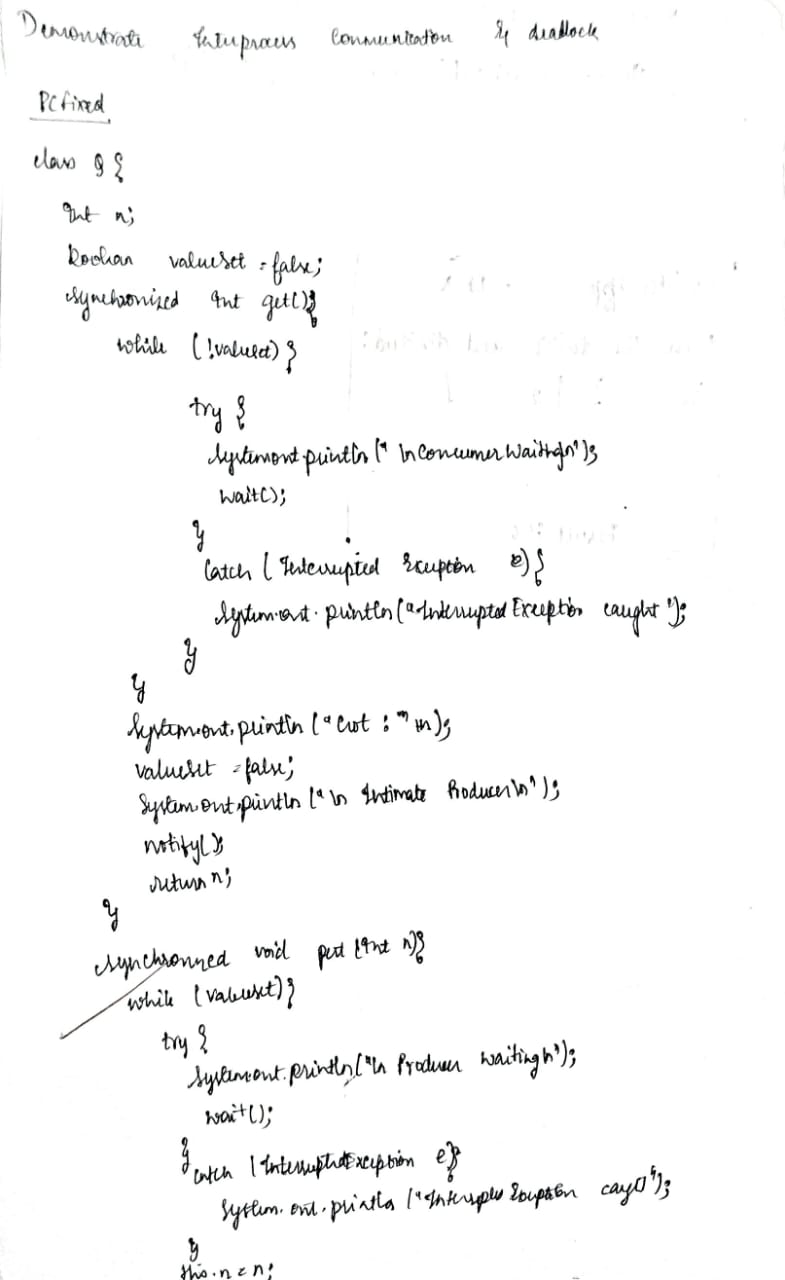 Demonstrate Interprocess Communication & deadlock
PC fixed
class Q {
int n;
boolean valueSet = false;
synchronized int get(){
while (!valueset) {
try {
System.out.println(" \n Consumer Waiting\n");
wait();
}
catch ( Interrupted Exception e) {
System.out.println("Interrupted Exception caught");
}
}
System.out.println ("Got : " n);
valueSet = false;
System.out.println ("\n Intimate Producer\n");
notify();
return n;
}
synchronized void put (int n){
while (valueset) {
try {
System.out.println("\n Producer waiting\n");
wait();
} catch (InterruptedException e){
System.out.println ("Interrupted Exception");
}
this.n = n;